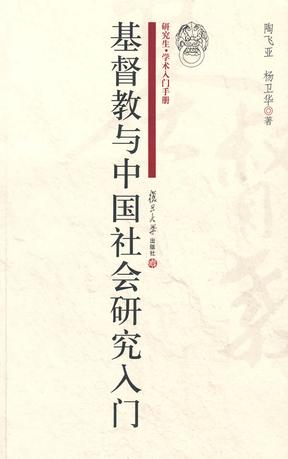 陶飞亚 杨卫华◎著
研究生·学术入门手册
基督教与中国社会研究入门
復旦大學
出版社